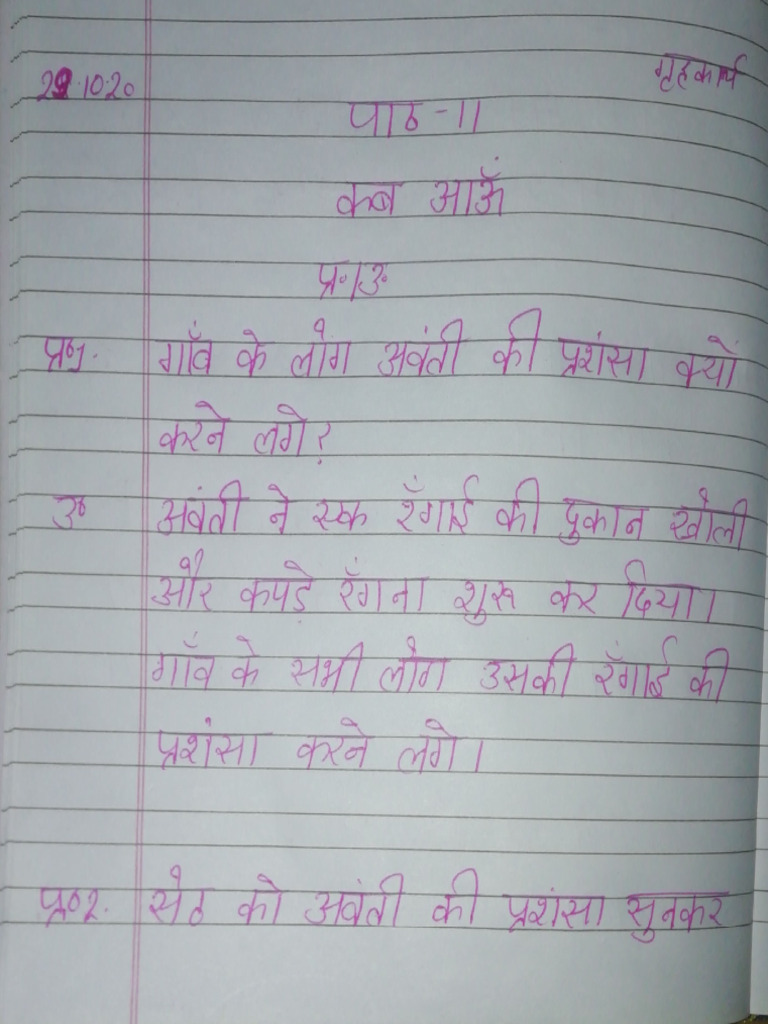 29.10.20 गृहकार्य
पाठ-11
कब आऊँ
प्र॰/उ॰
प्र०1. गाँव के लोग अवंती की प्रशंसा क्यों
करने लगे?
उ० अवंती ने एक रँगाई की दुकान खोली
और कपड़े रँगना शुरू कर दिया।
गाँव के सभी लोग उसकी रँगाई की
प्रशंसा करने लगे।
प्र०2. सेठ को अवंती की प्रशंसा सुनकर